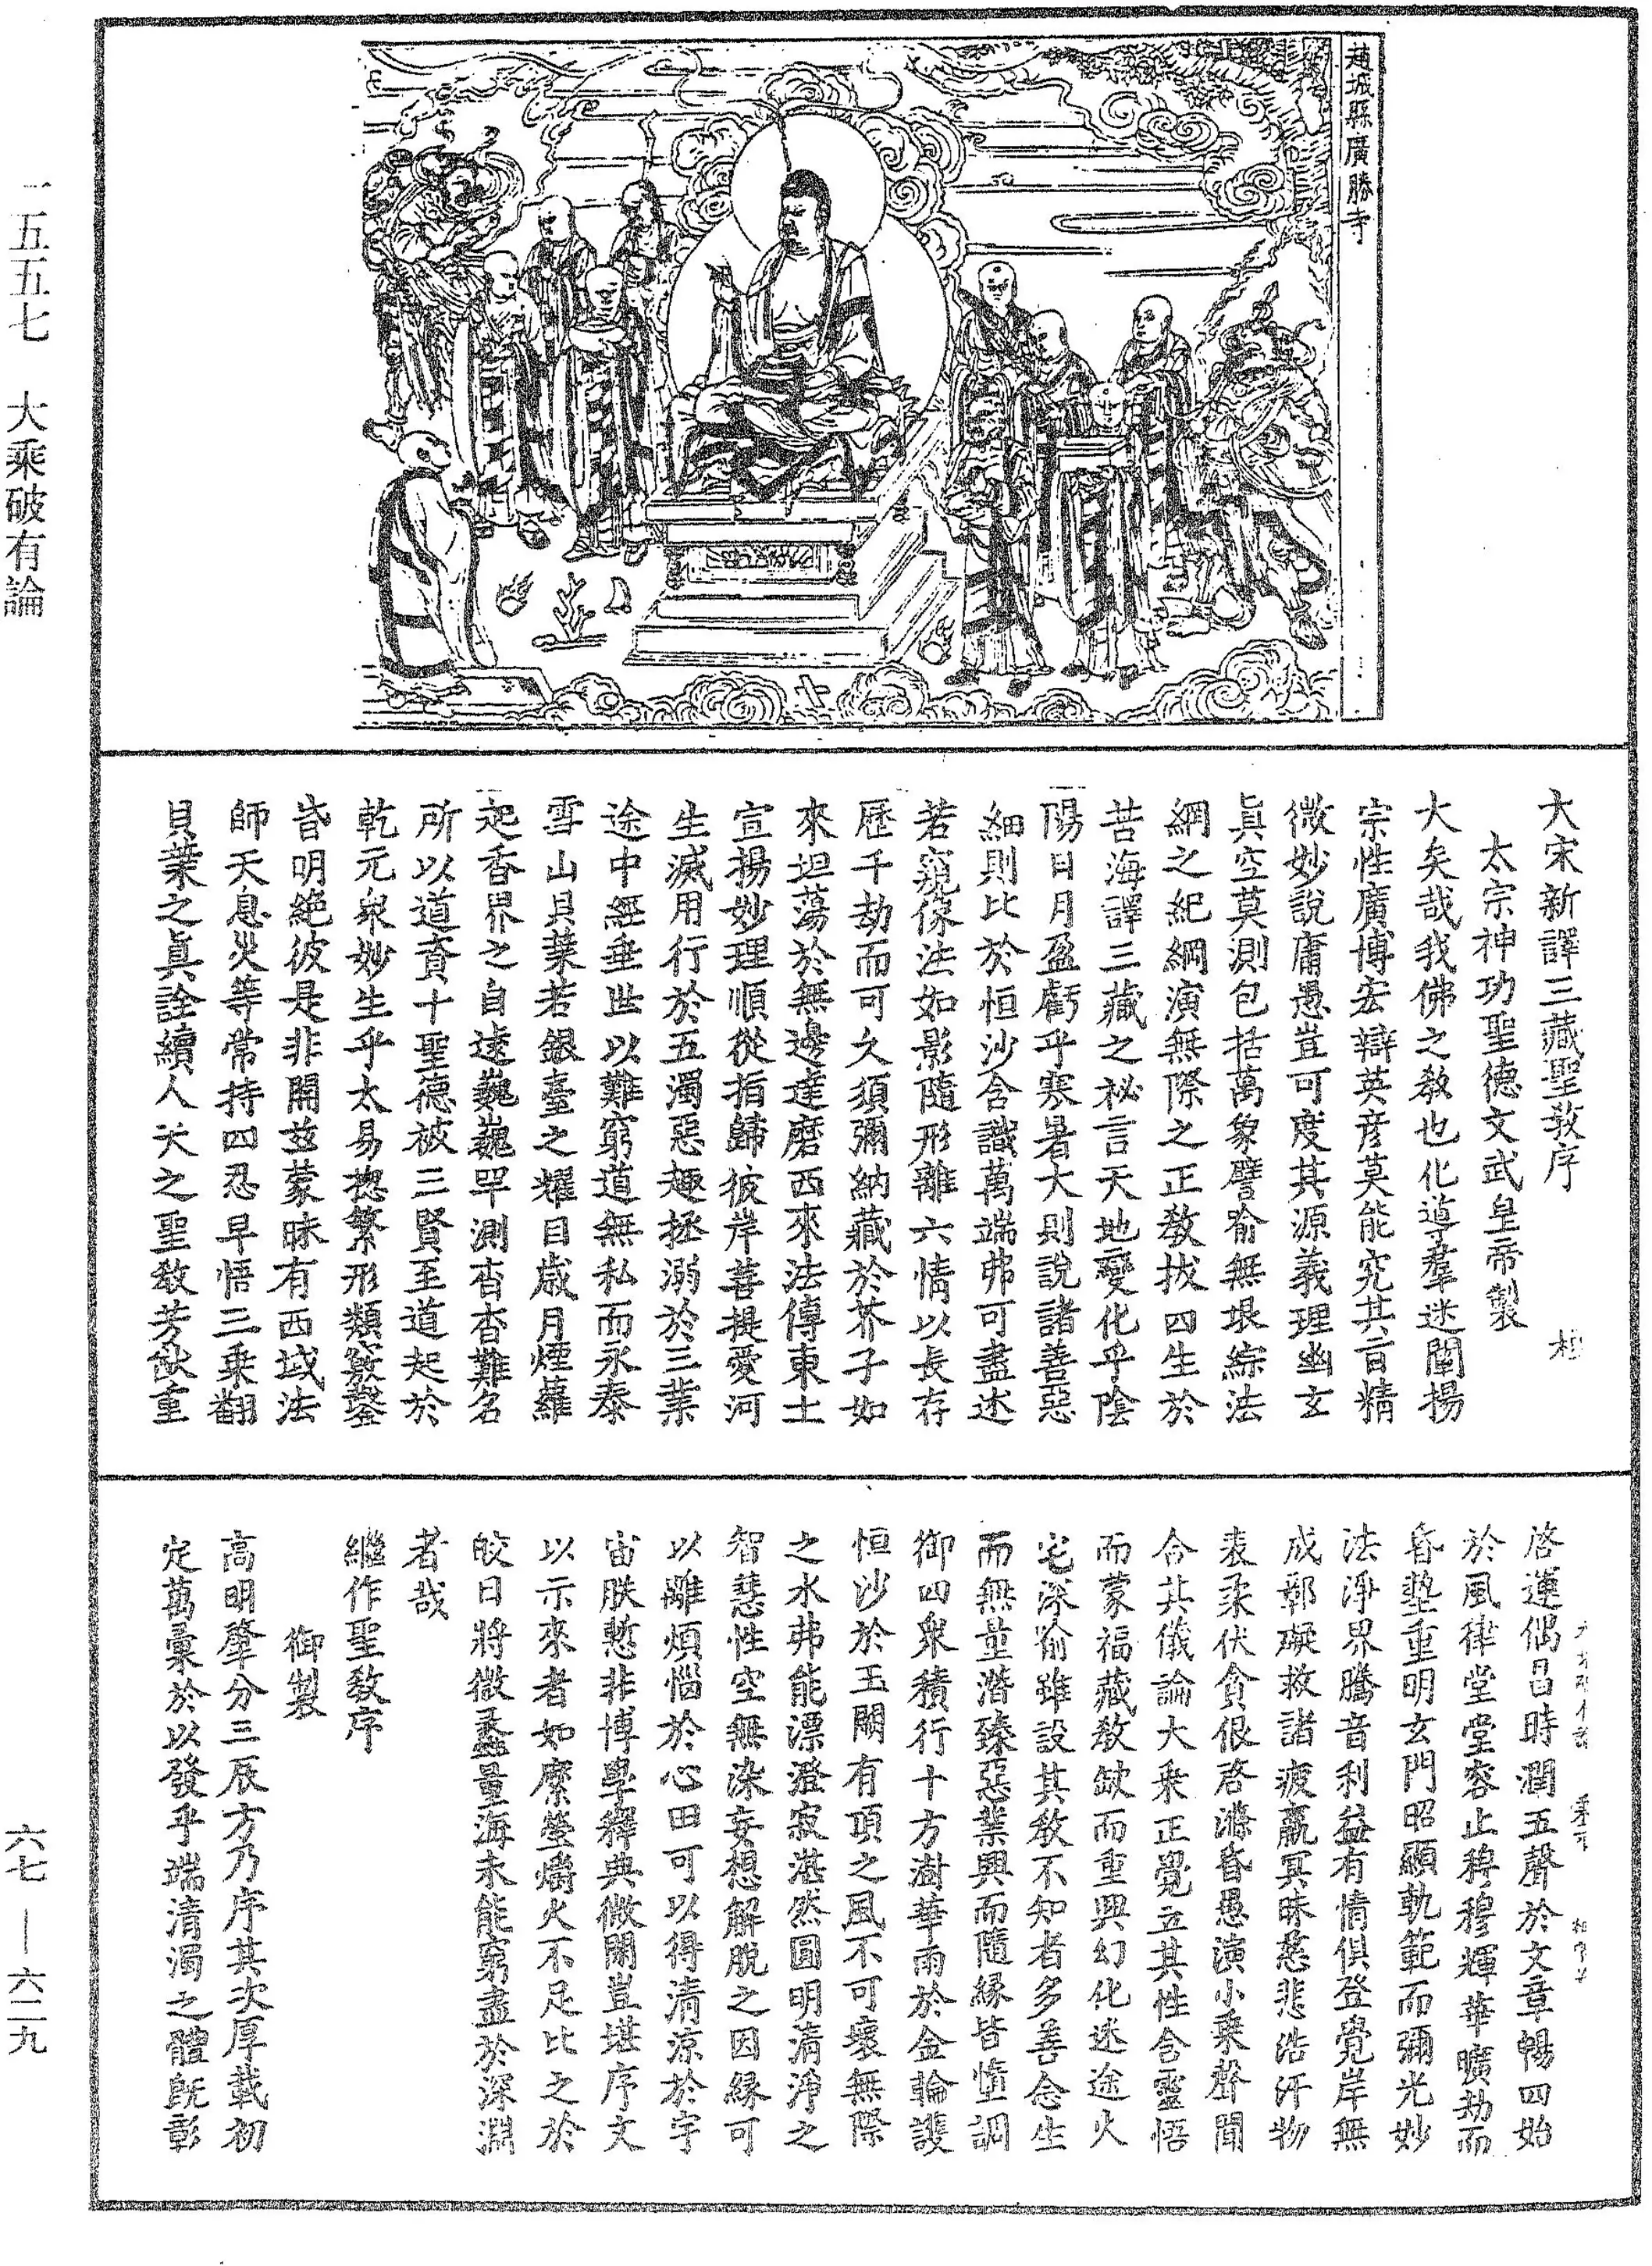 趙城縣廣勝寺
大宋新譯三藏聖教序
太宗神功聖德文武皇帝製
大矣哉我佛之教也化導羣迷闡揚
宗性廣博宏辯英彥莫能究其旨精
微妙說庸愚豈可度其源義理幽玄
真空莫測包括萬象譬喻無垠綜法
網之紀綱演無際之正教拔四生於
苦海譯三藏之祕言天地變化乎陰
陽日月盈虧乎寒暑大則說諸善惡
細則比於恒沙含識萬端弗可盡述
若窺像法如影隨形離六情以長存
歷千劫而可久須彌納藏於芥子如
來坦蕩於無邊達磨西來法傳東土
宣揚妙理順從指歸彼岸菩提愛河
生滅用行於五濁惡趣拯溺於三業
途中經垂世以難窮道無私而永泰
雪山貝葉若銀臺之耀目歲月煙蘿
起香界之自遠巍巍罕測杳杳難名
所以道資十聖德被三賢至道起於
乾元衆妙生乎太易揔繁形類竅鑿
昏明絶彼是非開兹蒙昧有西域法
師天息災等常持四忍早悟三乘翻
貝葉之真詮續人天之聖教芳猷重
啓運偶昌時潤五聲於文章暢四始
於風律堂堂容止穆穆輝華曠劫而
昏墊重明玄門昭顯軌範而彌光妙
法淨界騰音利益有情俱登覺岸無
成郭礙救諸疲羸冥昧慈悲浩汗物
表柔伏貪佷啓滌昏愚演小乘聲聞
合其儀論大乘正覺立其性含靈悟
而蒙福藏教缺而重興幻化迷途火
宅深喻雖設其教不知者多善念生
而無量潛臻惡業興而隨緣皆墮調
御四衆積行十方澍華雨於金輪護
恒沙於玉闕有頂之風不可壞無際
之水弗能漂澄寂湛然圓明清淨之
智慧性空無染妄想解脫之因緣可
以離煩惱於心田可以得清涼於宇
宙朕慙非博學釋典微閑豈堪序文
以示來者如縻螢爝火不足比之於
皎日將微蠡量海未能窮盡於深淵
者哉
繼作聖教序
御製
高明肇分三辰方乃序其次厚載初
定萬彙於以發乎端清濁之體旣彰
一五五七 大乘破有論
六七—六二九